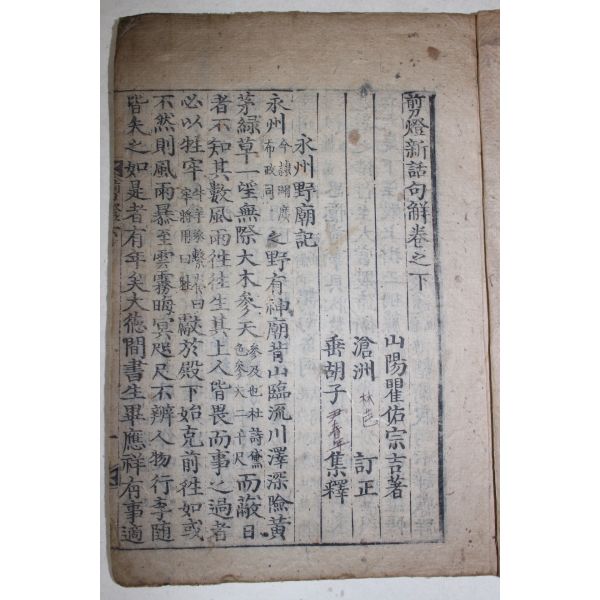 剪燈新話句解卷之下
山陽瞿佑宗吉著
滄洲 訂正
垂胡子尹春年集釋
永州野廟記
永州今隷湖廣布政司之野有神廟背山臨流川澤深險黃
茅綠草一望無際大木參天參及也杜詩黛色參天二千尺而蔽日
者不知其數風雨徃徃生其上人皆畏而事之過者
必以牲牢獻於殿下始克前徃如或
不然則風雨暴至雲霧晦冥咫尺不辨人物行李隨
皆失之如是者有年矣大德間書生畢應祥有事適